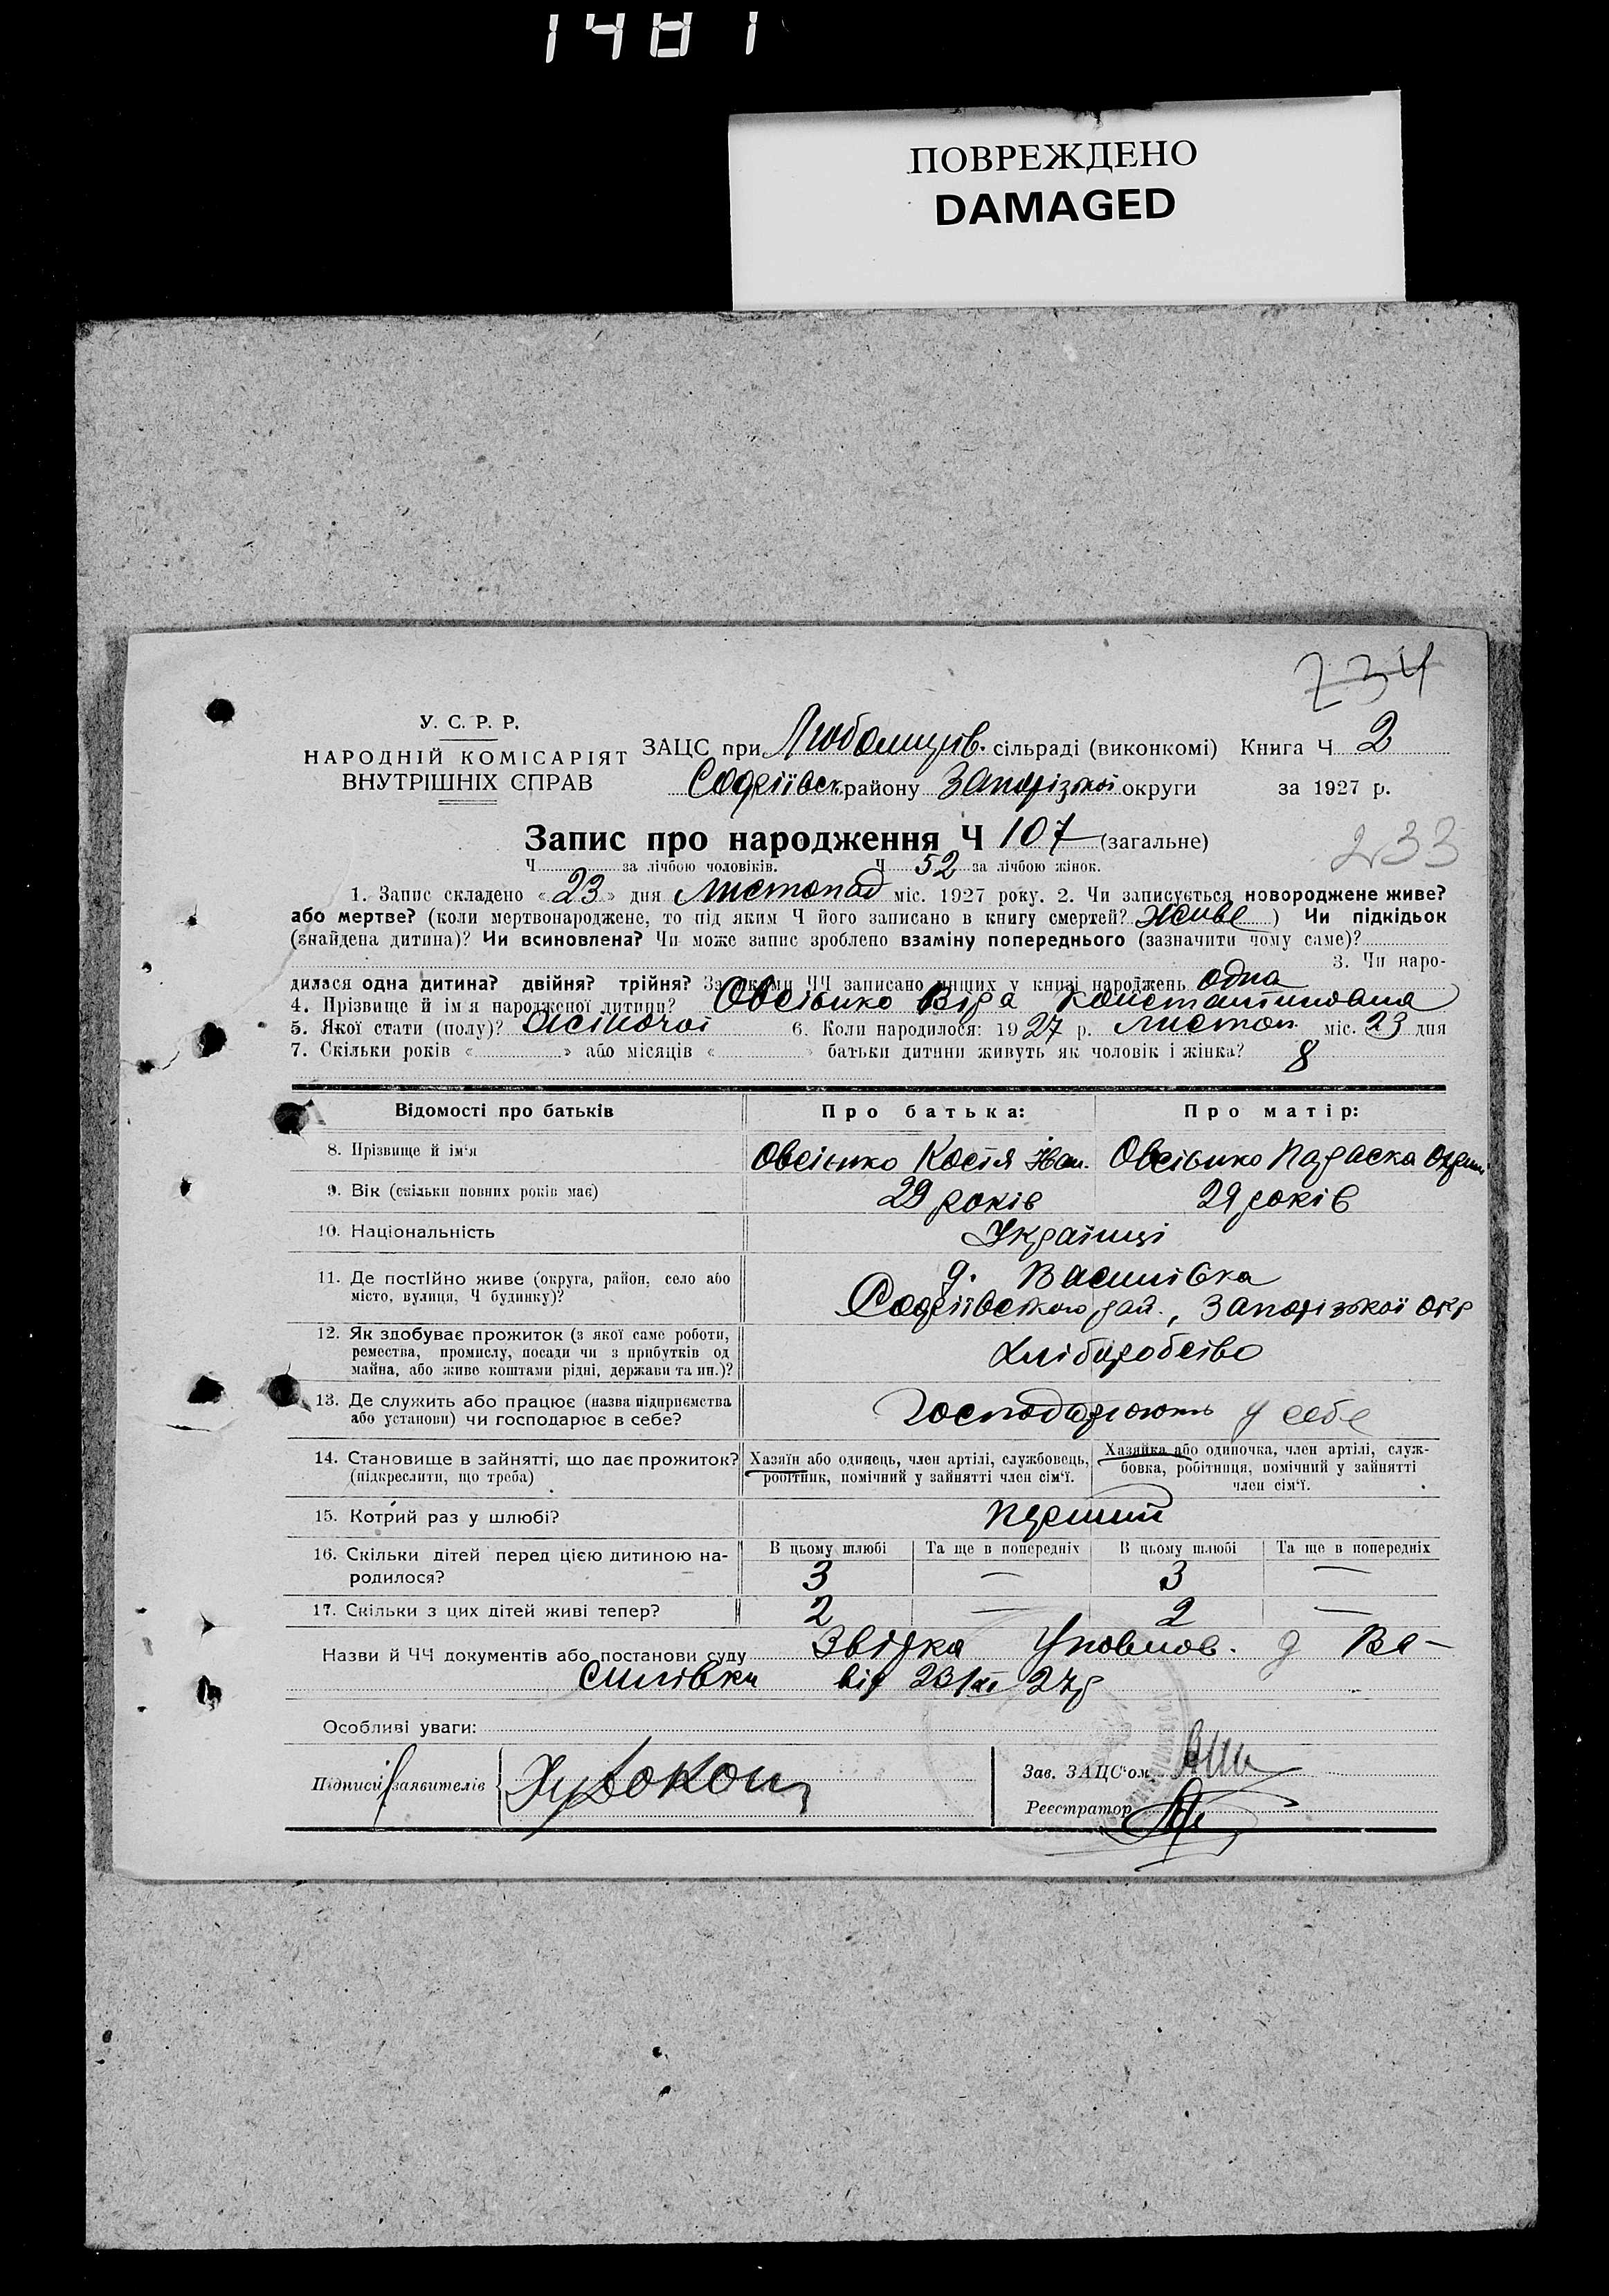 1481
ПОВРЕЖДЕНО
DAMAGED
734
У. С. Р. Р.
НАРОДНІЙ КОМІСАРІЯТ
ВНУТРІШНІХ СПРАВ
ЗАЦС при Любомирів. сільраді (виконкомі) Книга Ч 2
Софіївск. району Запорізької округи за 1927 р.
Запис про народження Ч 107 (загальне)
233
Ч за лічбою чоловіків. Ч 52 за лічбою жінок.
1. Запис складено «23» дня Листопад міс. 1927 року. 2. Чи записується новороджене живе?
або мертве? (коли мертвонароджене, то під яким Ч його записано в книгу смертей? живе) Чи підкідьок
(знайдена дитина)? Чи всиновлена? Чи може запис зроблено взаміну попереднього (зазначити чому саме)?
3. Чи наро-
дилася одна дитина? двійня? трійня? За якими ЧЧ записано инших у книзі народжень одна
4. Прізвище й ім'я народженої дитини? Овсієнко Віра Констатинована
5. Якої стати (полу)? жіночої 6. Коли народилося: 1927 р. листоп. міс. 23 дня
7. Скільки років « » або місяців « » батьки дитини живуть як чоловік і жінка? 8
Відомості про батьків Про батька: Про матір:
8. Прізвище й ім'я Овсієнко Костя Іван. Овсієнко Параска
9. Вік (скільки повних років має) 29 років 29 років
10. Національність Українці
11. Де постійно живе (округа, район, село або
місто, вулиця, Ч будинку)?
д. Василівка
Софіївського рай., Запорізької окр
12. Як здобуває прожиток (з якої саме роботи,
ремества, промислу, посади чи з прибутків од
майна, або живе коштами рідні, держави та ин.)?
хліборобство
13. Де служить або працює (назва підприємства
або установи) чи господарює в себе?
Господарюють у себе
14. Становище в зайнятті, що дає прожиток?
(підкреслити, що треба)
Хазяїн або одинець, член артілі, службовець,
робітник, помічний у зайнятті член сім'ї.
Хазяйка або одиночка, член артілі, служ-
бовка, робітниця, помічний у зайнятті
член сім'ї.
15. Котрий раз у шлюбі? перший
16. Скільки дітей перед цією дитиною на-
родилося?
В цьому шлюбі Та ще в попередніх В цьому шлюбі Та ще в попередніх
3 — 3 —
17. Скільки з цих дітей живі тепер? 2 — 2 —
Назви й ЧЧ документів або постанови суду Звідка Уповнов. д Ва-
силівки від 23/XI 27р
Особливі уваги:
Підписи заявителів
Зав. ЗАЦС'ом
Реєстратор